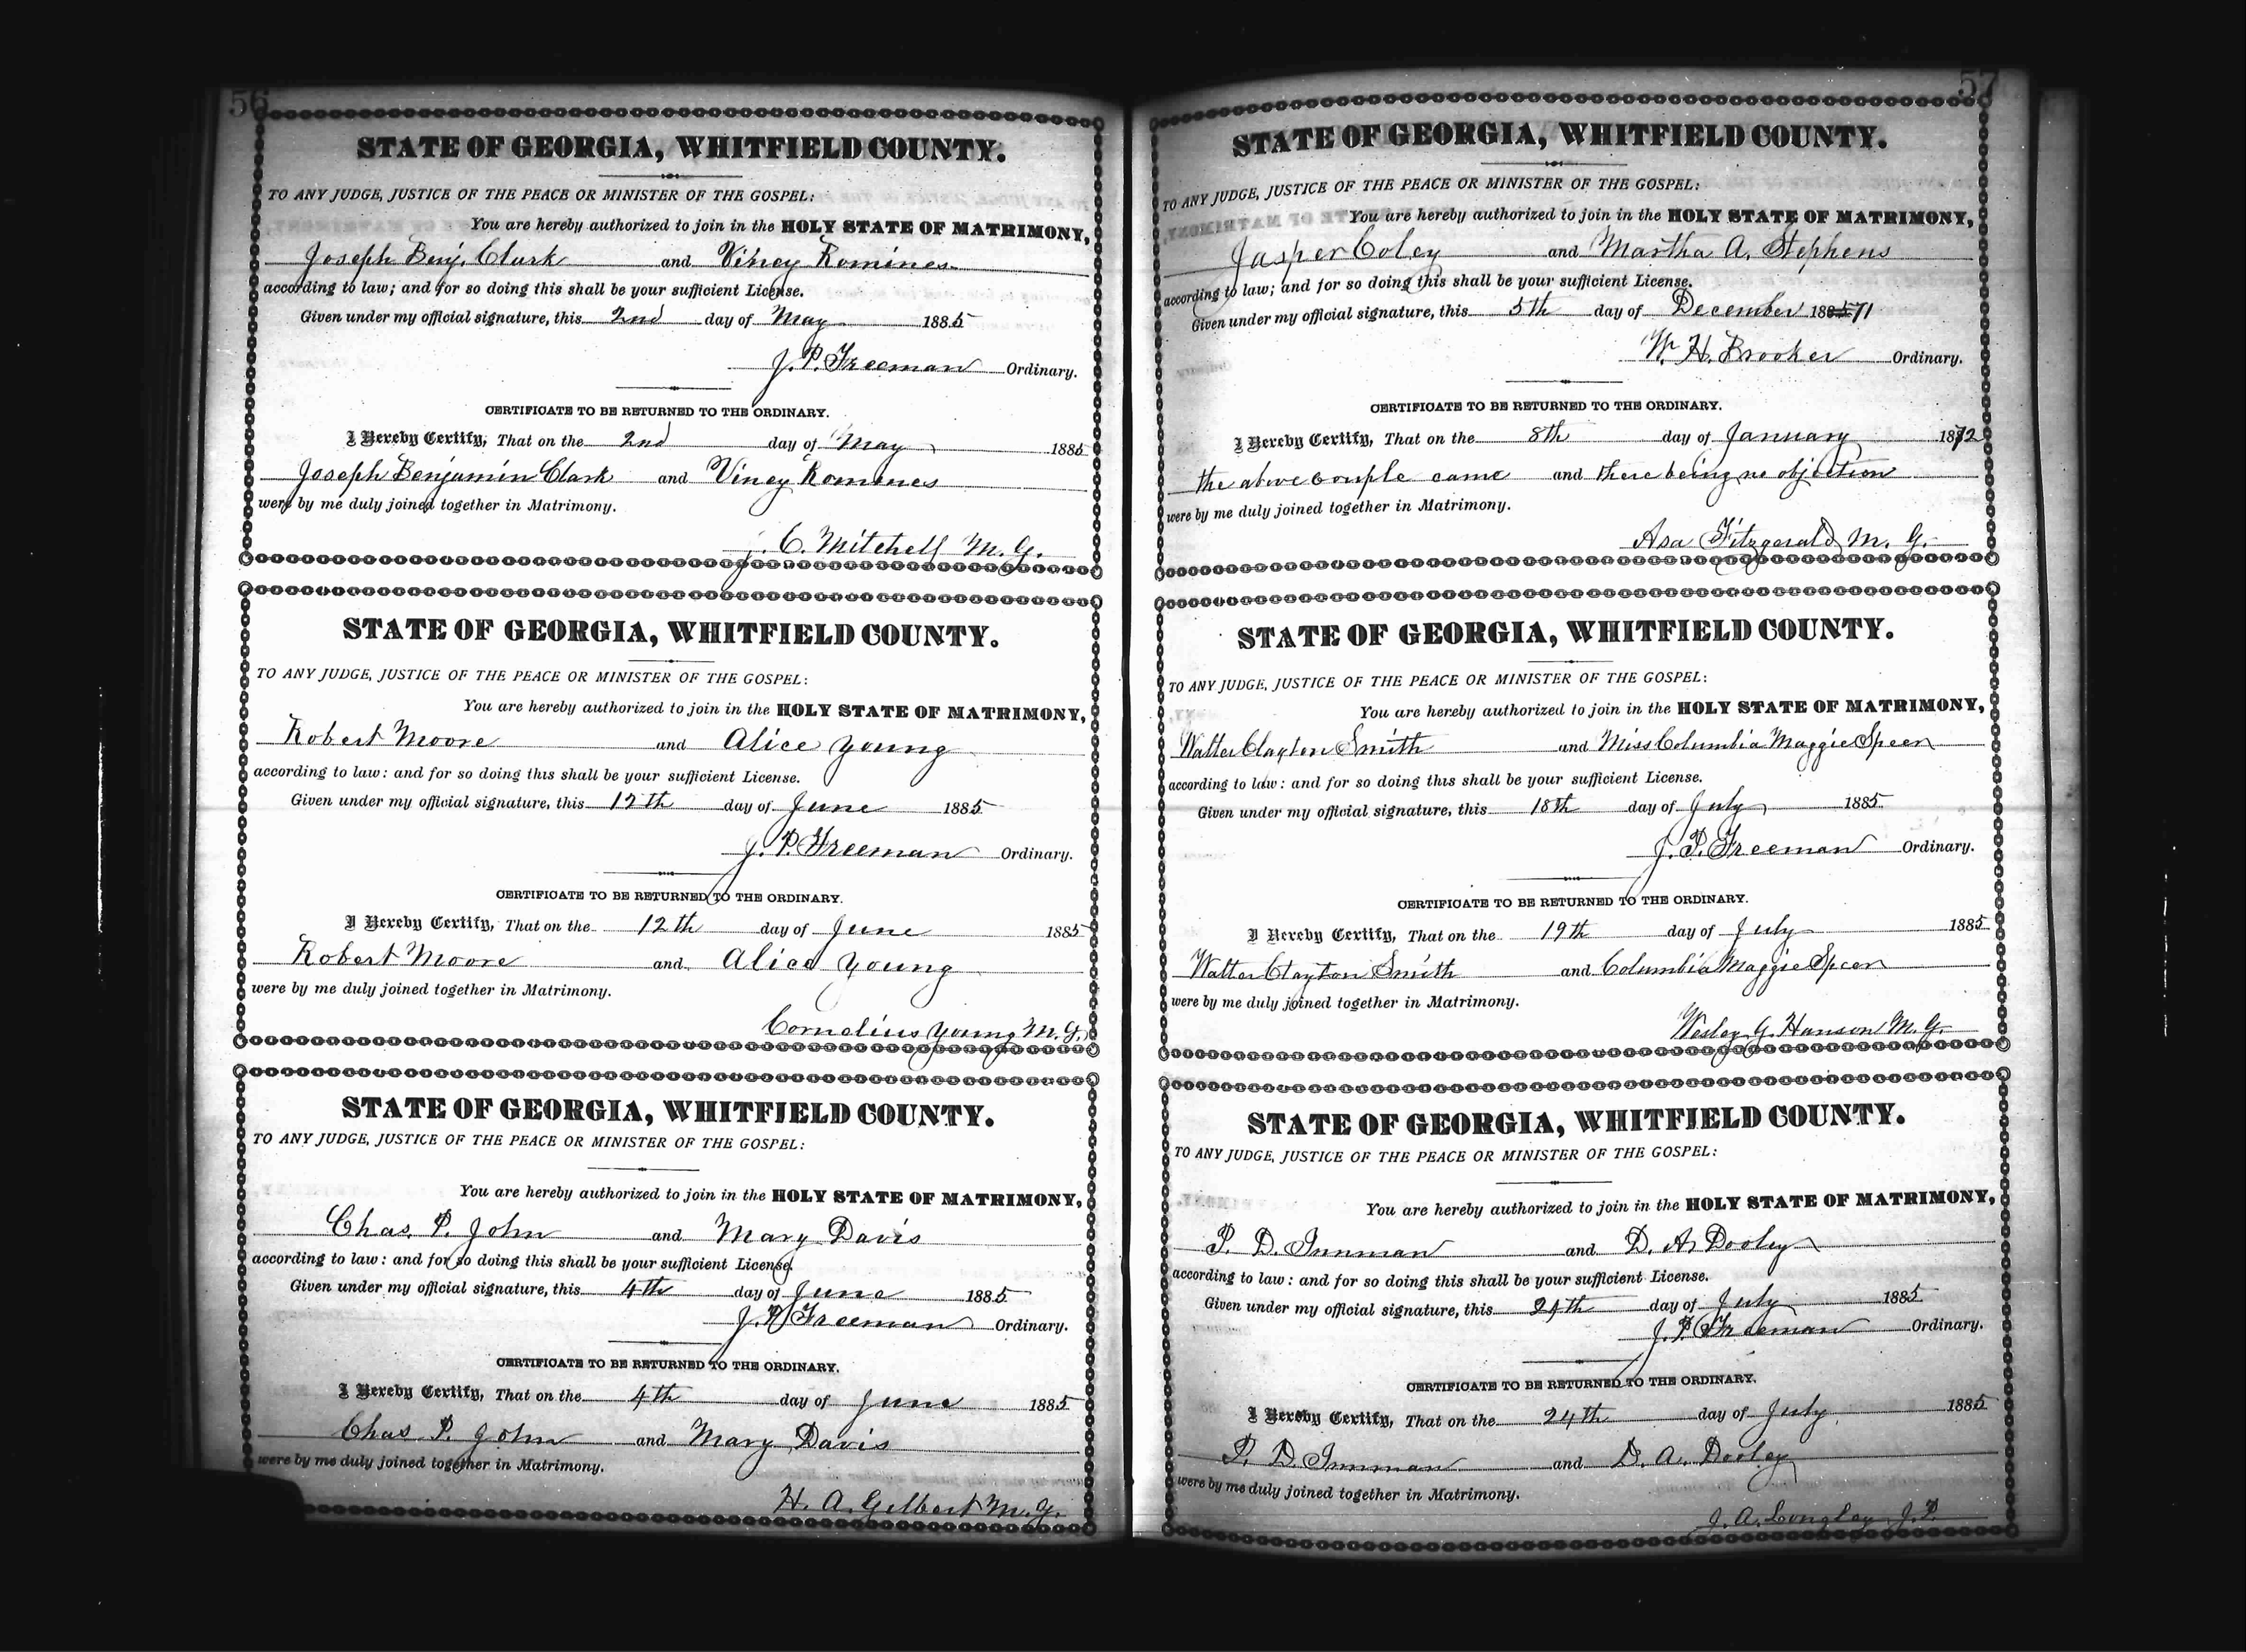 56
STATE OF GEORGIA, WHITFIELD COUNTY.
TO ANY JUDGE, JUSTICE OF THE PEACE OR MINISTER OF THE GOSPEL:
You are hereby authorized to join in the HOLY STATE OF MATRIMONY,
Joseph Benj. Clark and Viney Romines
according to law; and for so doing this shall be your sufficient License.
Given under my official signature, this 2nd day of May 1885
J. P. Freeman Ordinary.
CERTIFICATE TO BE RETURNED TO THE ORDINARY.
I Hereby Certify, That on the 2nd day of May 1885
Joseph Benjamin Clark and Viney Romines
were by me duly joined together in Matrimony.
J. C. Mitchell M. G.
STATE OF GEORGIA, WHITFIELD COUNTY.
TO ANY JUDGE, JUSTICE OF THE PEACE OR MINISTER OF THE GOSPEL:
You are hereby authorized to join in the HOLY STATE OF MATRIMONY,
Robert Moore and Alice Young
according to law: and for so doing this shall be your sufficient License.
Given under my official signature, this 12th day of June 1885
J. P. Freeman Ordinary.
CERTIFICATE TO BE RETURNED TO THE ORDINARY.
I Hereby Certify, That on the 12th day of June 1885
Robert Moore and Alice Young
were by me duly joined together in Matrimony.
Cornelius Young M. G.
STATE OF GEORGIA, WHITFIELD COUNTY.
TO ANY JUDGE, JUSTICE OF THE PEACE OR MINISTER OF THE GOSPEL:
You are hereby authorized to join in the HOLY STATE OF MATRIMONY,
Chas. P. John and Mary Davis
according to law: and for so doing this shall be your sufficient License.
Given under my official signature, this 4th day of June 1885
J. P. Freeman Ordinary.
CERTIFICATE TO BE RETURNED TO THE ORDINARY.
I Hereby Certify, That on the 4th day of June 1885
Chas P. John and Mary Davis
were by me duly joined together in Matrimony.
H. A. Gilbert M. G.
57
STATE OF GEORGIA, WHITFIELD COUNTY.
TO ANY JUDGE, JUSTICE OF THE PEACE OR MINISTER OF THE GOSPEL:
You are hereby authorized to join in the HOLY STATE OF MATRIMONY,
Jasper Coley and Martha A. Stephens
according to law; and for so doing this shall be your sufficient License.
Given under my official signature, this 5th day of December 1871
W. H. Brooker Ordinary.
CERTIFICATE TO BE RETURNED TO THE ORDINARY.
I Hereby Certify, That on the 8th day of January 1872
the above couple came and there being no objection
were by me duly joined together in Matrimony.
Asa Fitzgerald M. G.
STATE OF GEORGIA, WHITFIELD COUNTY.
TO ANY JUDGE, JUSTICE OF THE PEACE OR MINISTER OF THE GOSPEL:
You are hereby authorized to join in the HOLY STATE OF MATRIMONY,
Walter Clayton Smith and Miss Columbia Maggie Speer
according to law: and for so doing this shall be your sufficient License.
Given under my official signature, this 18th day of July 1885
J. P. Freeman Ordinary.
CERTIFICATE TO BE RETURNED TO THE ORDINARY.
I Hereby Certify, That on the 19th day of July 1885
Walter Clayton Smith and Columbia Maggie Speer
were by me duly joined together in Matrimony.
Wesley G. Hanson M. G.
STATE OF GEORGIA, WHITFIELD COUNTY.
TO ANY JUDGE, JUSTICE OF THE PEACE OR MINISTER OF THE GOSPEL:
You are hereby authorized to join in the HOLY STATE OF MATRIMONY,
P. D. Innman and D. A. Dooley
according to law: and for so doing this shall be your sufficient License.
Given under my official signature, this 24th day of July 1885
J. P. Freeman Ordinary.
CERTIFICATE TO BE RETURNED TO THE ORDINARY.
I Hereby Certify, That on the 24th day of July 1885
P. D. Innman and D. A. Dooley
were by me duly joined together in Matrimony.
J. A. Longley J. P.